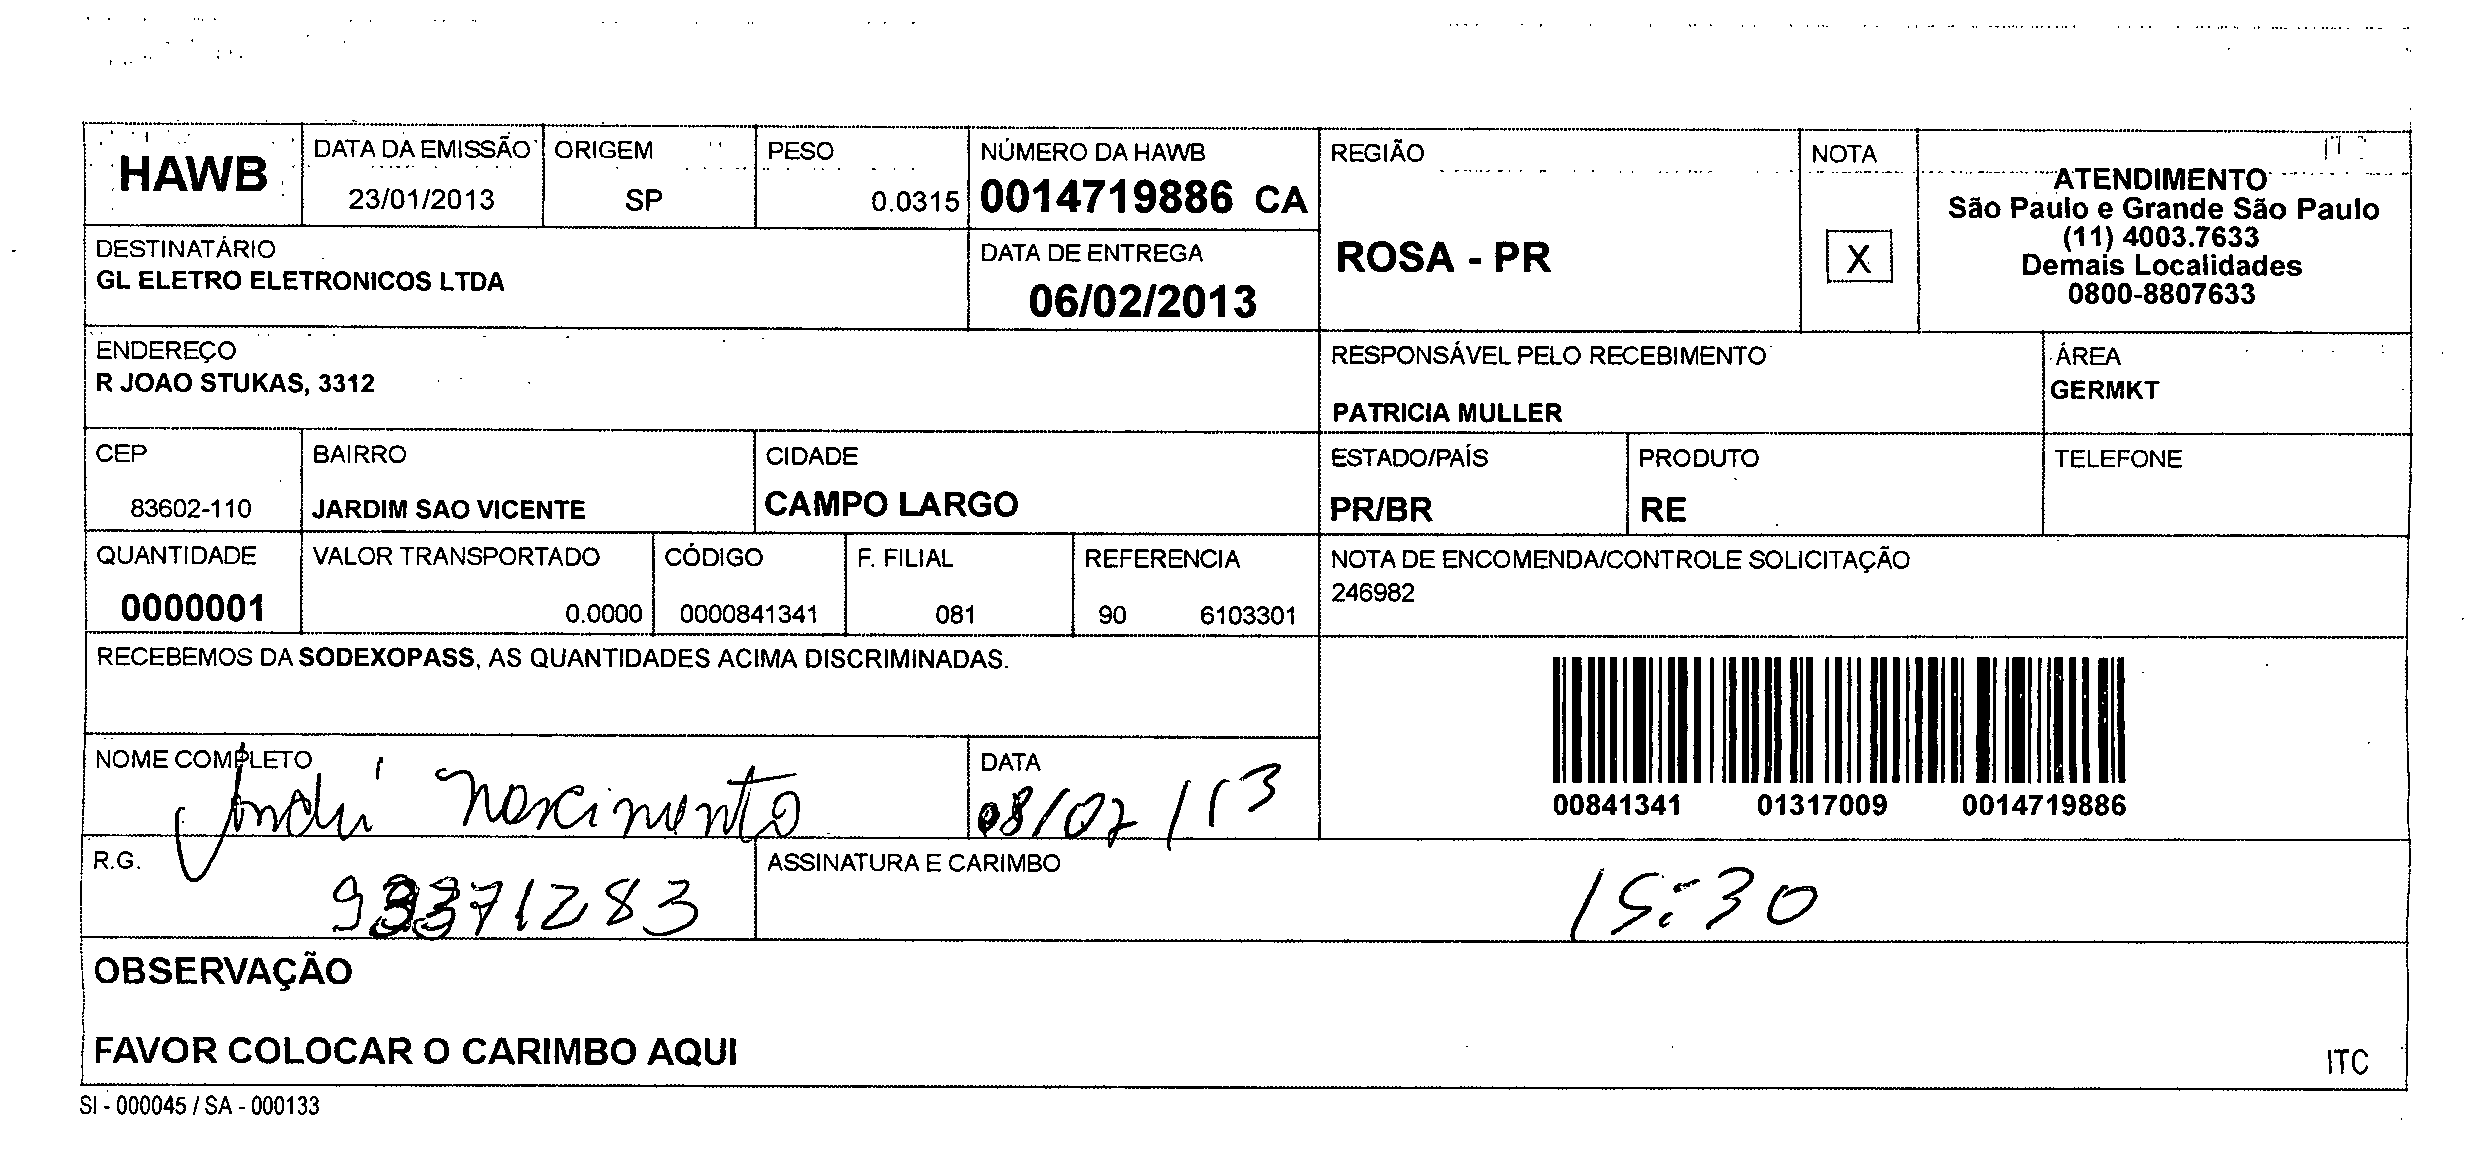 HAWB
DATA DA EMISSÃO
23/01/2013
ORIGEM
SP
PESO
0.0315
NÚMERO DA HAWB
0014719886 CA
REGIÃO
ROSA - PR
NOTA
X
ATENDIMENTO
São Paulo e Grande São Paulo
(11) 4003.7633
Demais Localidades
0800-8807633
DESTINATÁRIO
GL ELETRO ELETRONICOS LTDA
DATA DE ENTREGA
06/02/2013
ENDEREÇO
R JOAO STUKAS, 3312
RESPONSÁVEL PELO RECEBIMENTO
PATRICIA MULLER
ÁREA
GERMKT
CEP
83602-110
BAIRRO
JARDIM SAO VICENTE
CIDADE
CAMPO LARGO
ESTADO/PAÍS
PR/BR
PRODUTO
RE
TELEFONE
QUANTIDADE
0000001
VALOR TRANSPORTADO
0.0000
CÓDIGO
0000841341
F. FILIAL
081
REFERENCIA
90 6103301
NOTA DE ENCOMENDA/CONTROLE SOLICITAÇÃO
246982
RECEBEMOS DA SODEXOPASS, AS QUANTIDADES ACIMA DISCRIMINADAS.
00841341 01317009 0014719886
NOME COMPLETO
André Nascimento
DATA
08/02/13
R.G.
ASSINATURA E CARIMBO
15:30
OBSERVAÇÃO
FAVOR COLOCAR O CARIMBO AQUI
ITC
SI - 000045 / SA - 000133